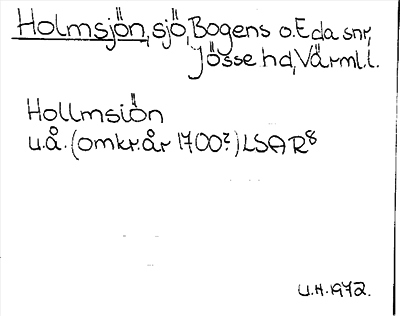 Holmsjön, sjö, Bogens o. Eda snr,
Jösse hd, Värml.l.
Hollmsiön
u.å. (omkr. år 1700?) LSAR⁸
U.H. 1972.